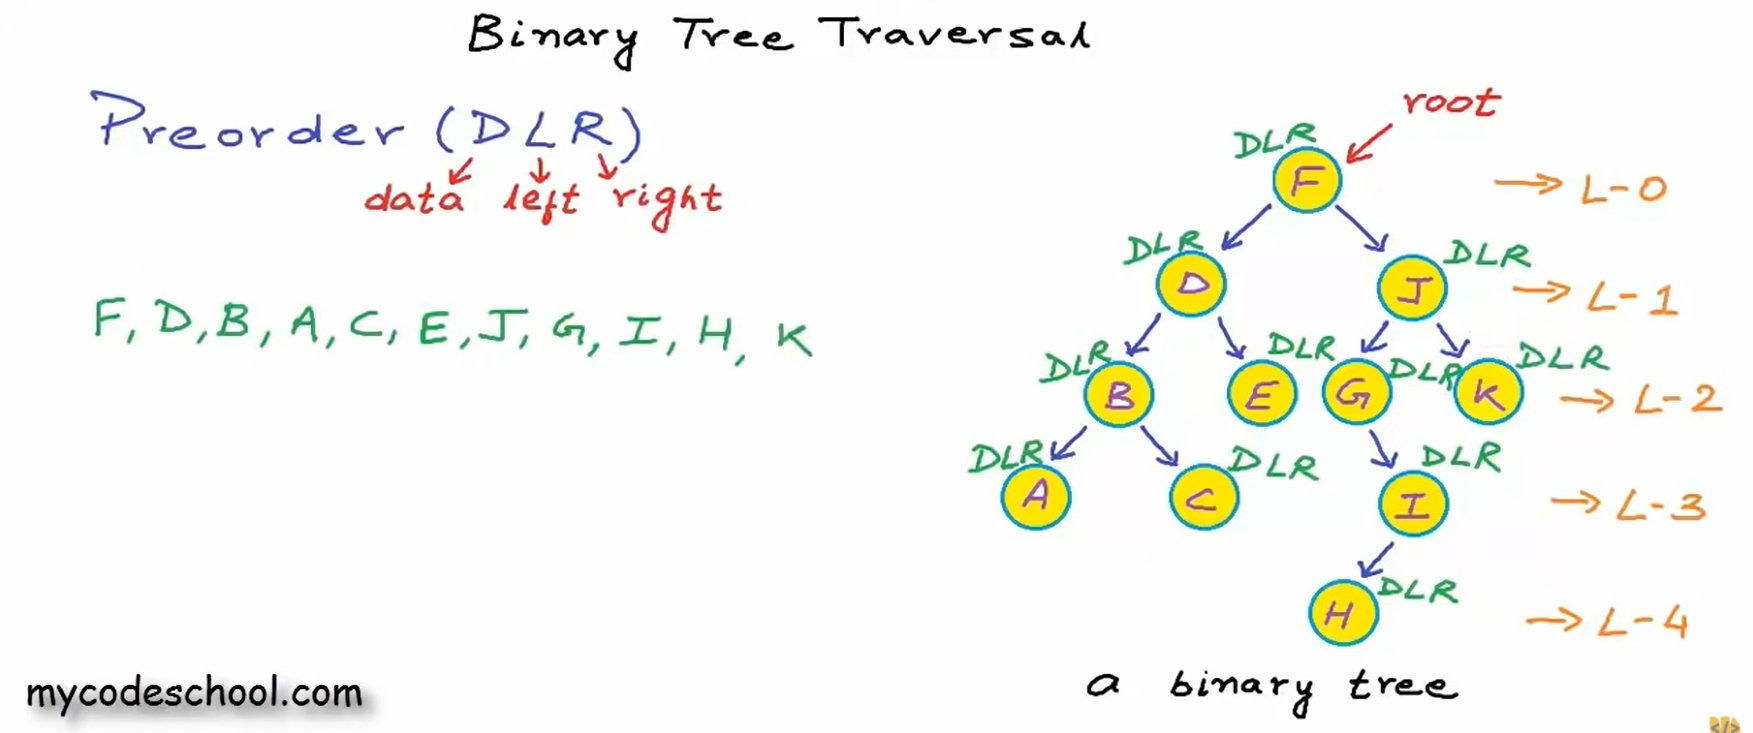 Binary Tree Traversal
Preorder (DLR)
data left right
F, D, B, A, C, E, J, G, I, H, K
root
DLR
F
→ L-0
DLR
DLR
D
J
→ L-1
DLR
DLR
DLR
DLR
B
E
G
K
→ L-2
DLR
DLR
DLR
A
C
I
→ L-3
DLR
H
→ L-4
a binary tree
mycodeschool.com